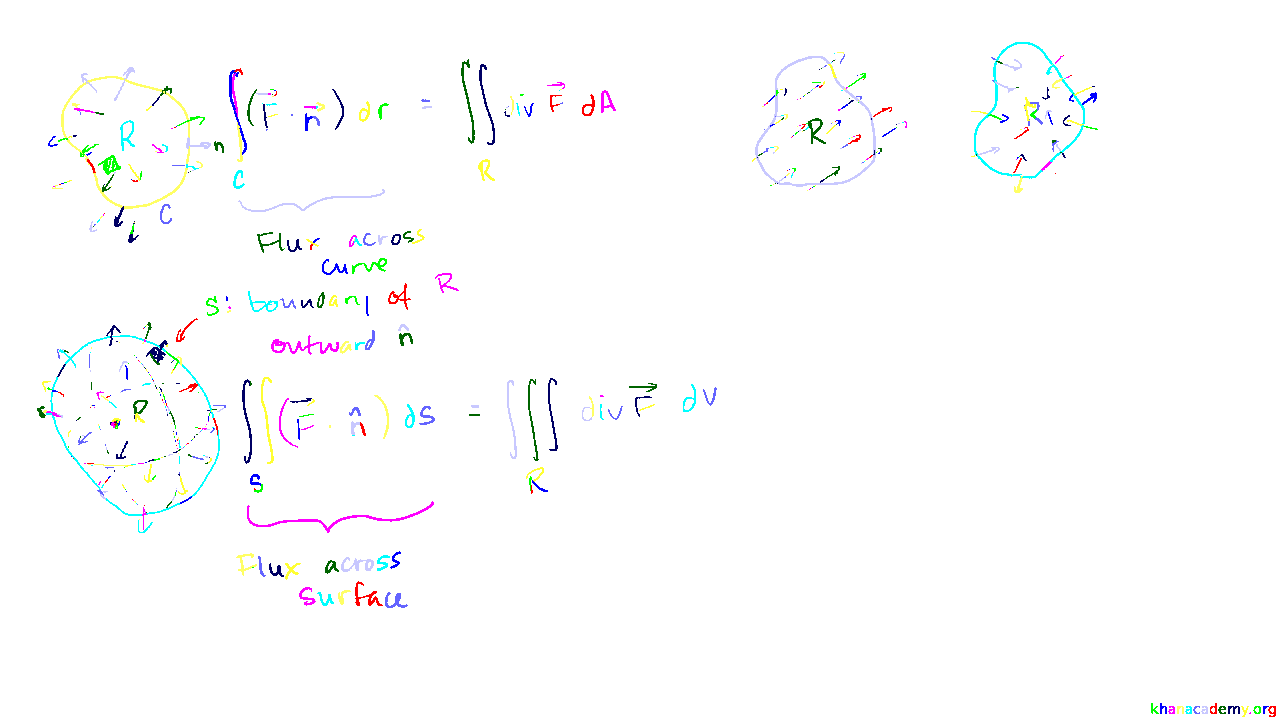 R
n
C
∫ (F⃗ · n⃗) dr = ∬ div F⃗ dA
C
R
Flux across
curve
S: boundary of R
outward n̂
R
∬ (F⃗ · n̂) dS = ∭ div F⃗ dV
S
R
Flux across
surface
R
R
khanacademy.org